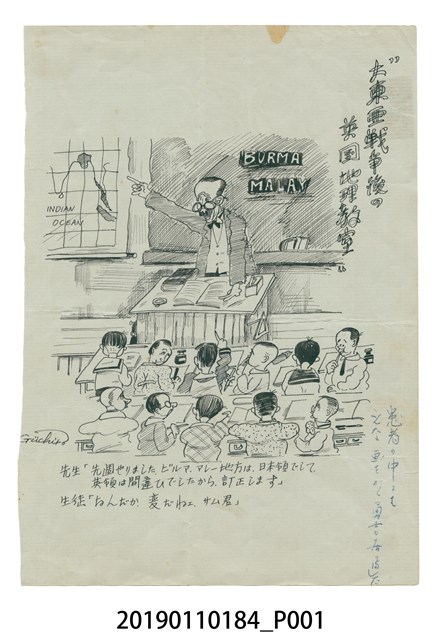 "大東亜戦争後の
英国地理教室"
BURMA
MALAY
INDIAN
OCEAN
先生「先週やりましたビルマ、マレー地方は、日本領でして、
英領は間違ひでしたから、訂正します」
生徒「なんだか 変だねェ、サム君」
20190110184_P001